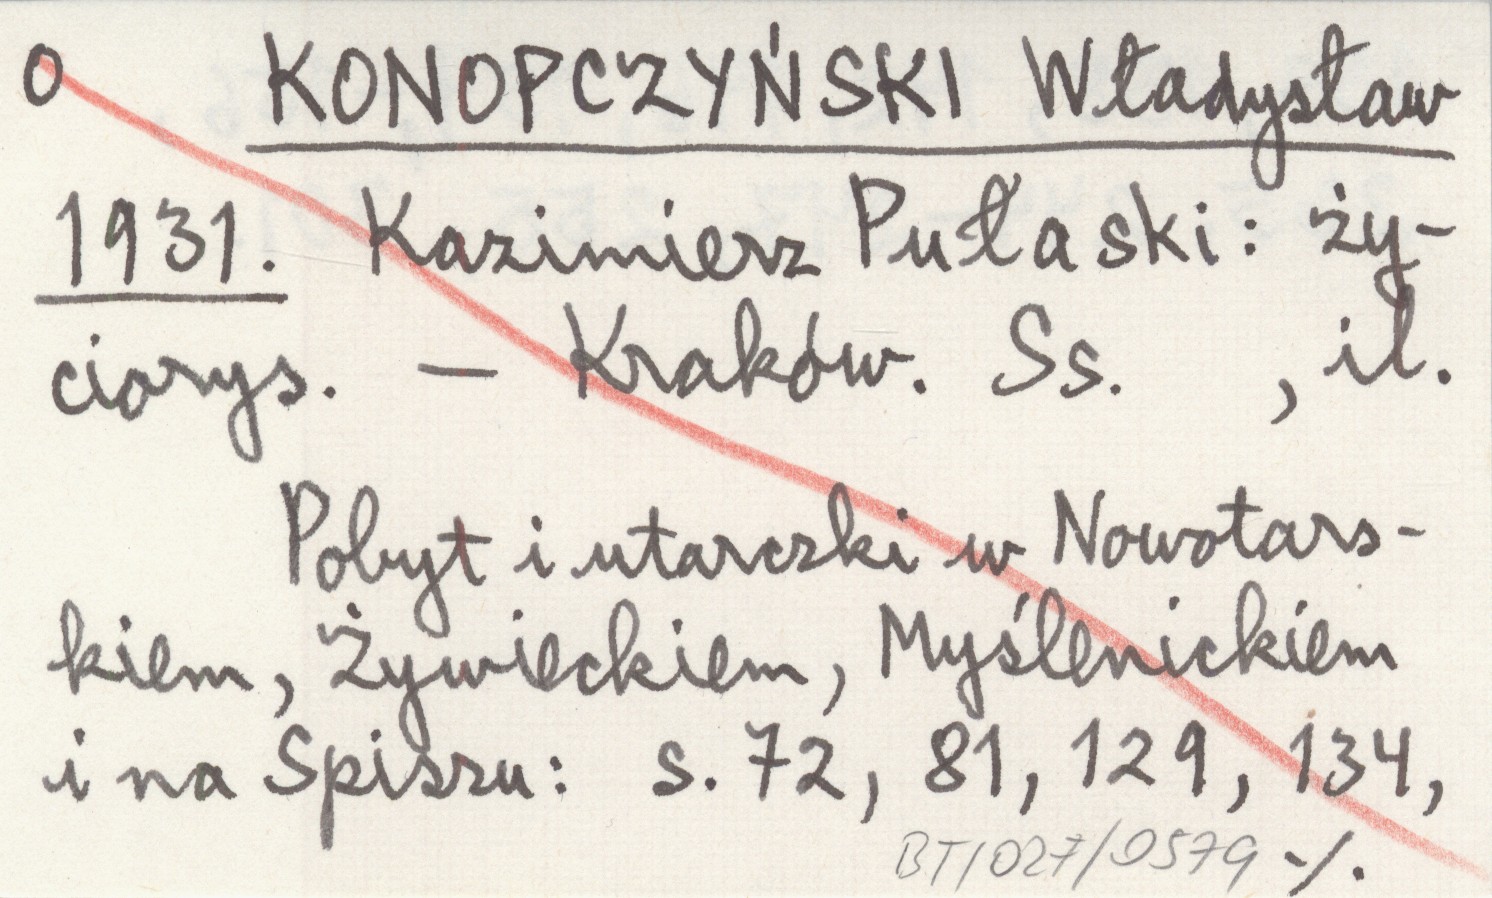 O KONOPCZYŃSKI Władysław
1931. Kazimierz Pułaski: ży-
ciorys. — Kraków. Ss. , il.
Pobyt i utarczki w Nowotars-
kiem, Żywieckiem, Myślenickiem
i na Spiszu: s. 72, 81, 129, 134,
BT/027/0579 -/.